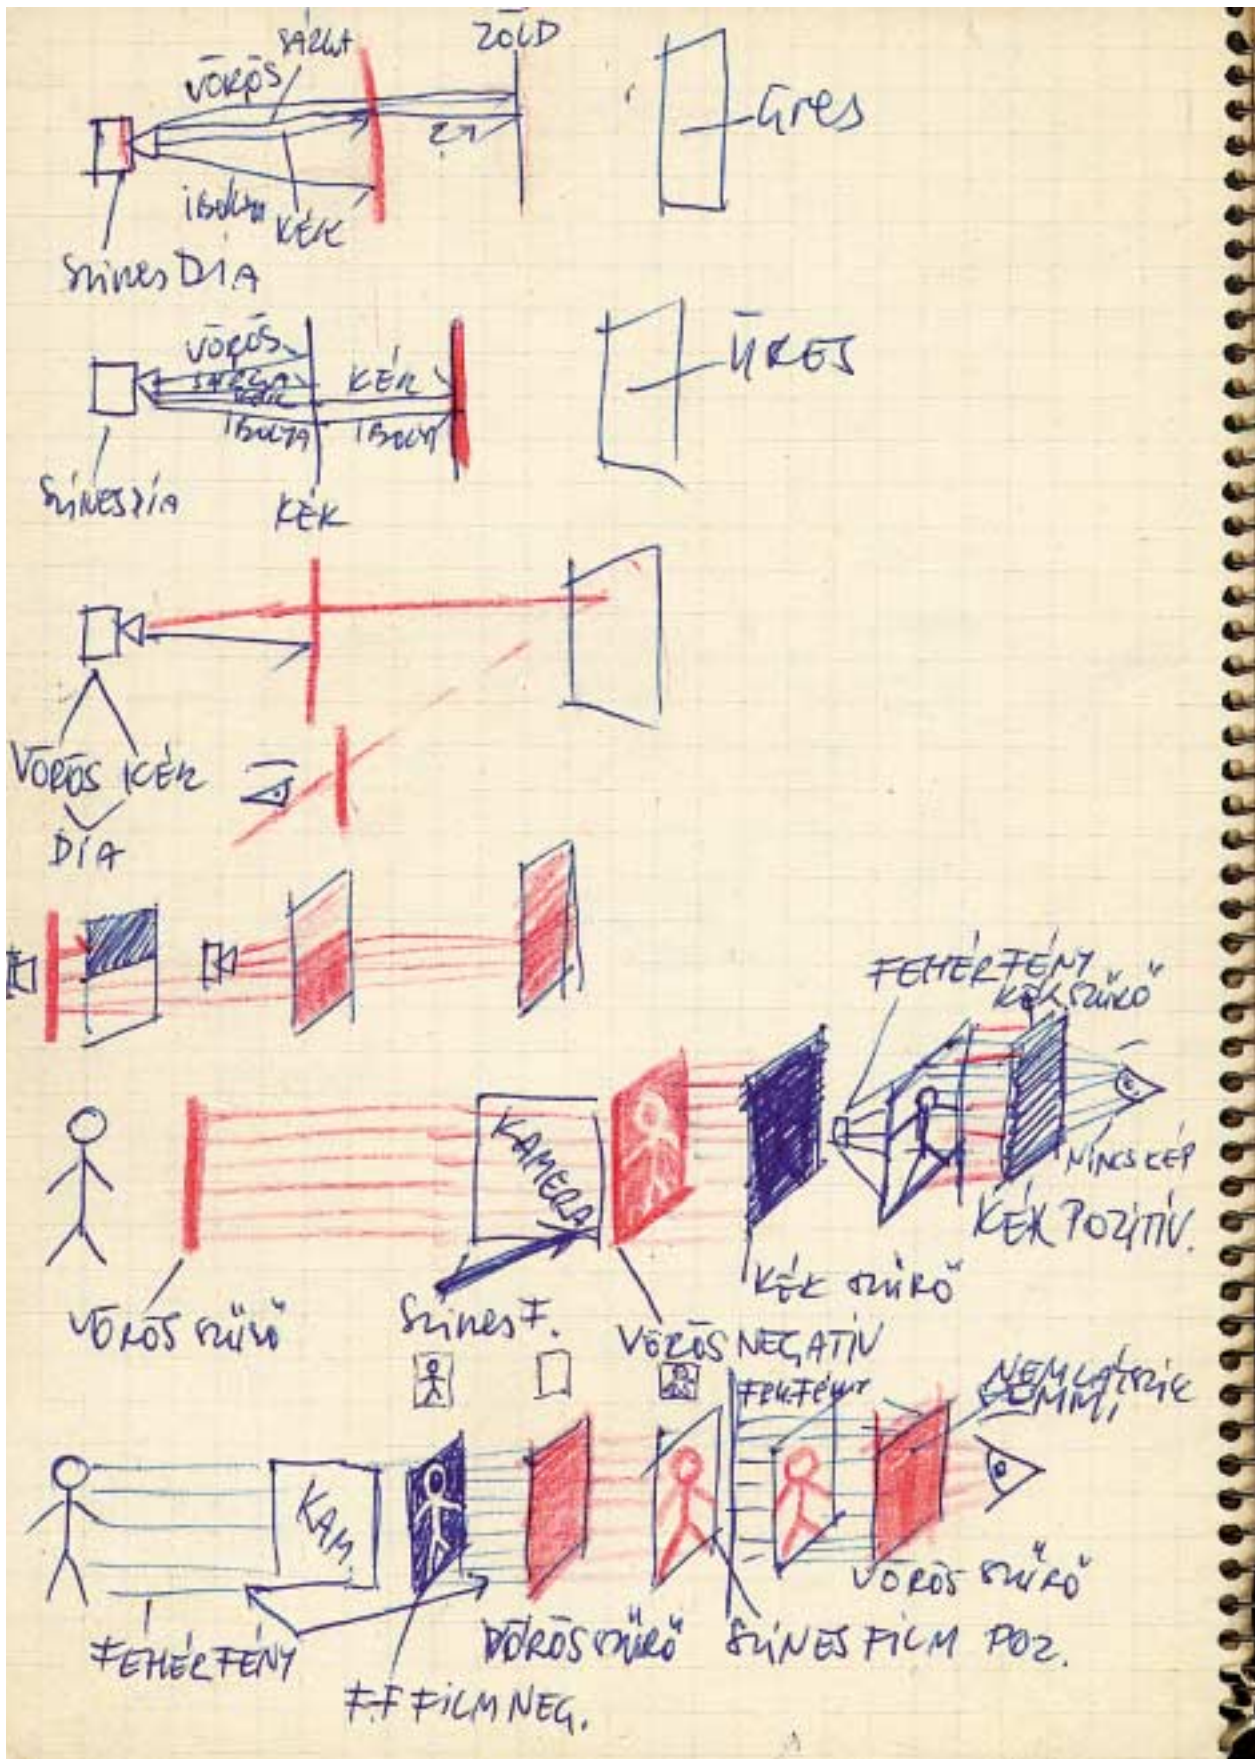 SÁRGA
ZÖLD
VÖRÖS
üres
IBOLYA
KÉK
Színes DIA
VÖRÖS
SÁRGA
KÉK
KÉK
ÜRES
IBOLYA
IBOLYA
SZÍNES DIA
KÉK
VÖRÖS KÉK
DIA
FEHÉR FÉNY
KÉK SZŰRŐ
KAMERA
NINCS KÉP
KÉK POZITÍV.
KÉK SZŰRŐ
VÖRÖS SZŰRŐ
Színes F.
VÖRÖS NEGATÍV
FEH. FÉNY
NEM LÁTSZIK
SEMMI
KAM.
VÖRÖS SZŰRŐ
FEHÉR FÉNY
VÖRÖS SZŰRŐ
SZÍNES FILM POZ.
F.F FILM NEG.